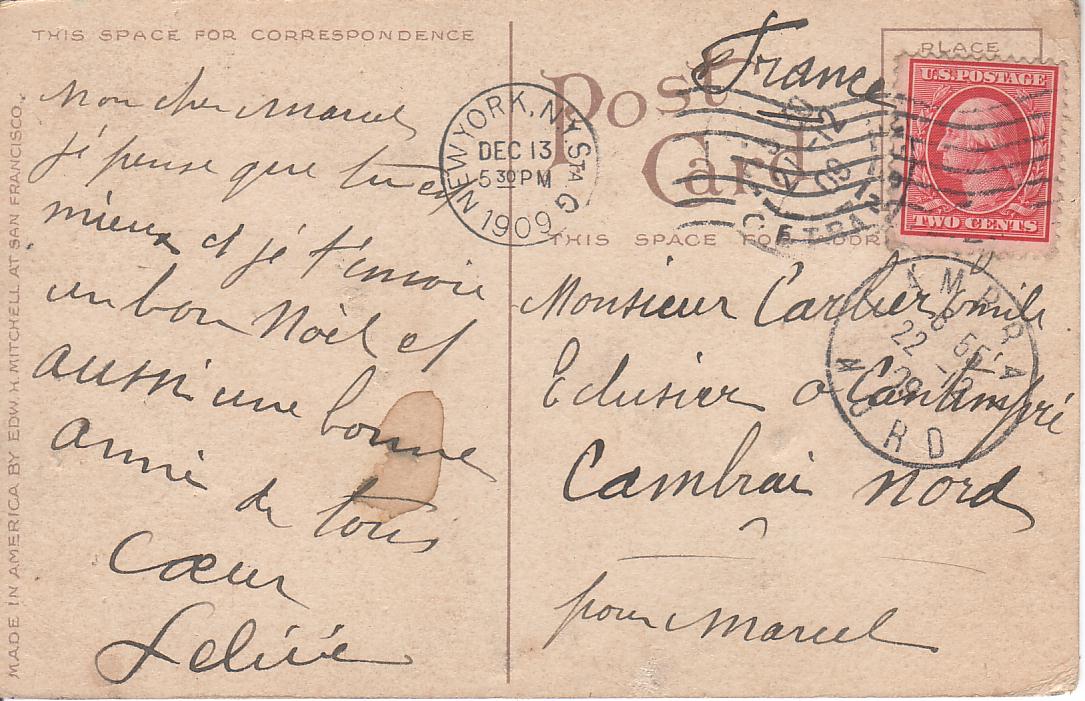 THIS SPACE FOR CORRESPONDENCE
Mon cher Marcel
j'e pense que tu es
mieux et je t'envoie
un bon Noël et
aussi une bonne
anné de tous
cœur
MADE IN AMERICA BY EDW. H. MITCHELL AT SAN FRANCISCO.
Post Card
France
PLACE
U.S. POSTAGE
TWO CENTS
NEW YORK, N.Y. STA G
DEC 13
5 30 PM
1909
THIS SPACE FOR ADDR
Monsieur Carlier Emile
Eclusier a Cantimpré
Cambrai Nord
pour Marcel
CAMBRAI
8 55
22 -12
09
NORD